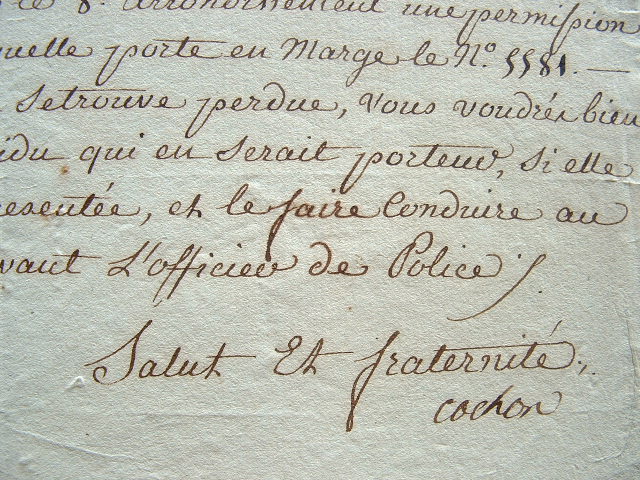 ce 8e. arrondissement une permission
quelle porte en Marge le No. 5581. —
setrouve perdue, vous voudrés bien
idu qui en serait porteur, si elle
resentée, et le faire Conduire au
vant L'officier de Police ./.
Salut Et fraternité ;.
cochon